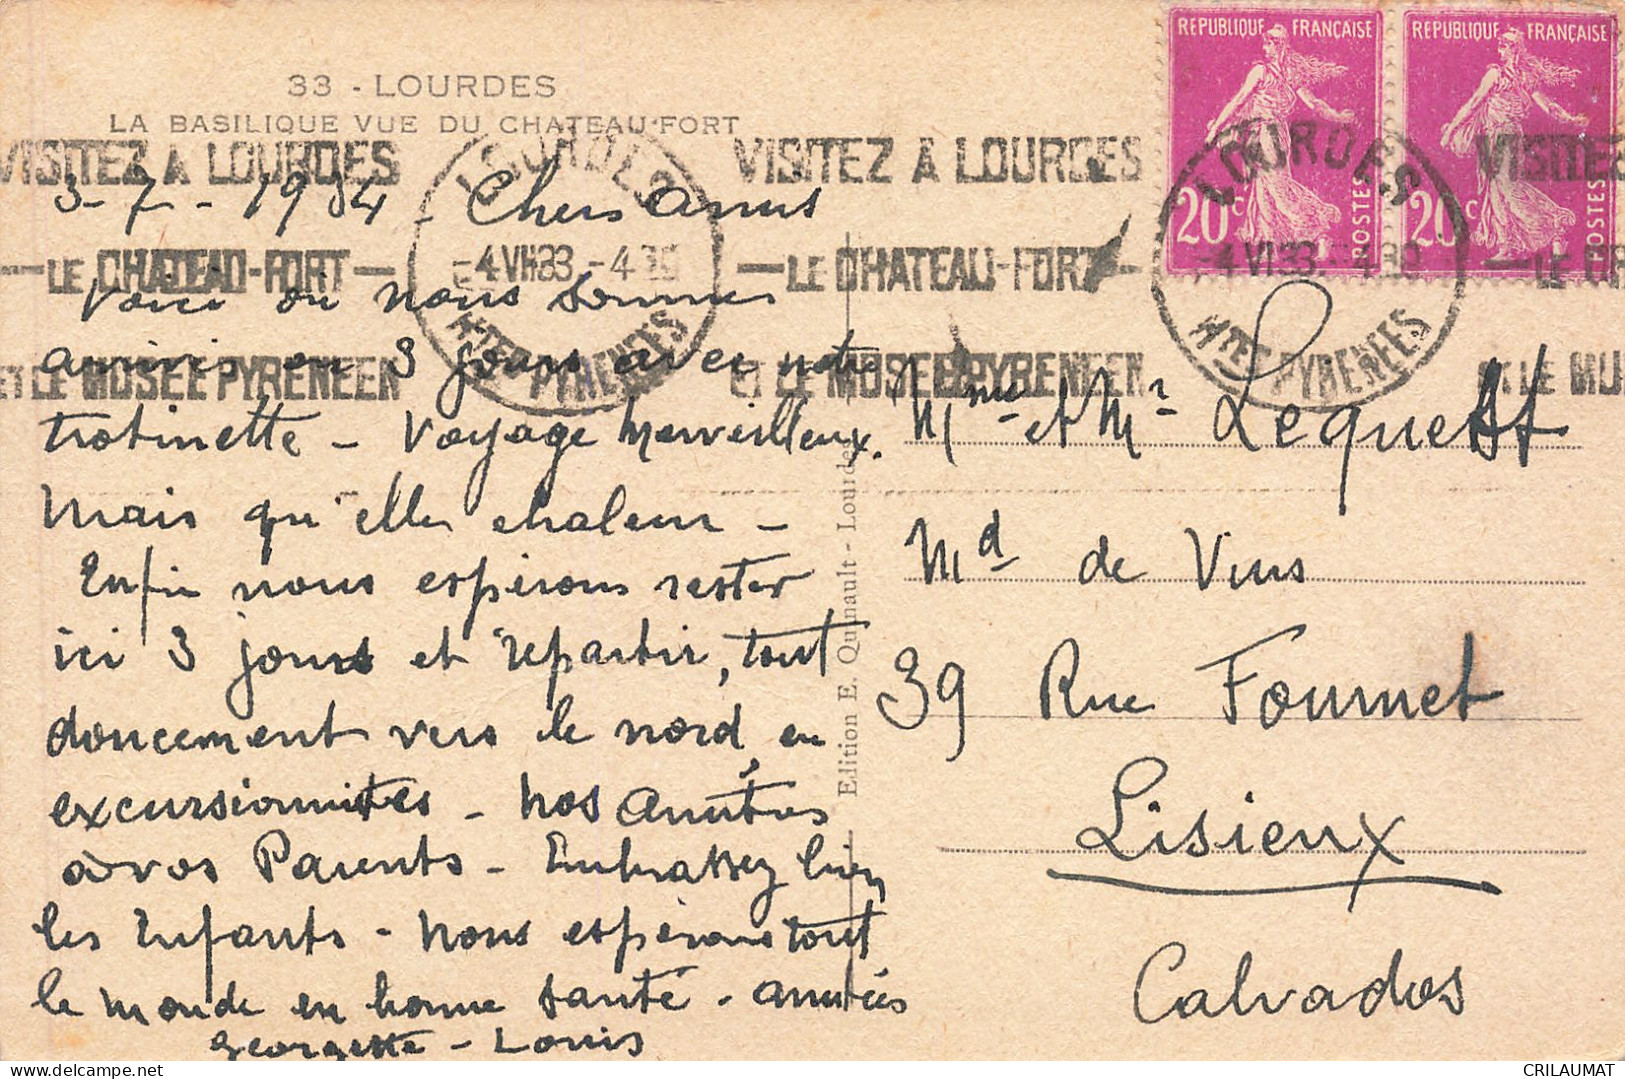 33 - LOURDES
LA BASILIQUE VUE DU CHATEAU-FORT
REPUBLIQUE FRANÇAISE
20c POSTES
REPUBLIQUE FRANÇAISE
20c POSTES
VISITEZ A LOURDES
LE CHATEAU-FORT
ET LE MUSEE PYRENEEN
LOURDES
4 VII 33
Htes PYRENEES
VISITEZ A LOURDES
LE CHATEAU-FORT
ET LE MUSEE PYRENEEN
LOURDES
Htes PYRENEES
VISITEZ
LE CH
ET LE MU
3-7-1934 - Chers Amis
Voici où nous sommes
arrivés en 3 jours avec notre
trotinette - Voyage merveilleux.
Mais qu'elle chaleur -
Enfin nous espérons rester
ici 3 jours et repartir, tout
doucement vers le nord, en
excursionnistes - Nos amitiés
à vos Parents - Embrassez bien
les Enfants - Nous espérons tout
le monde en bonne santé - amitiés
Georgette - Louis
Edition E. Quinault - Lourdes
Mme et Mr Lequett
Md de Vins
39 Rue Fournet
Lisieux
Calvados
CRILAUMAT